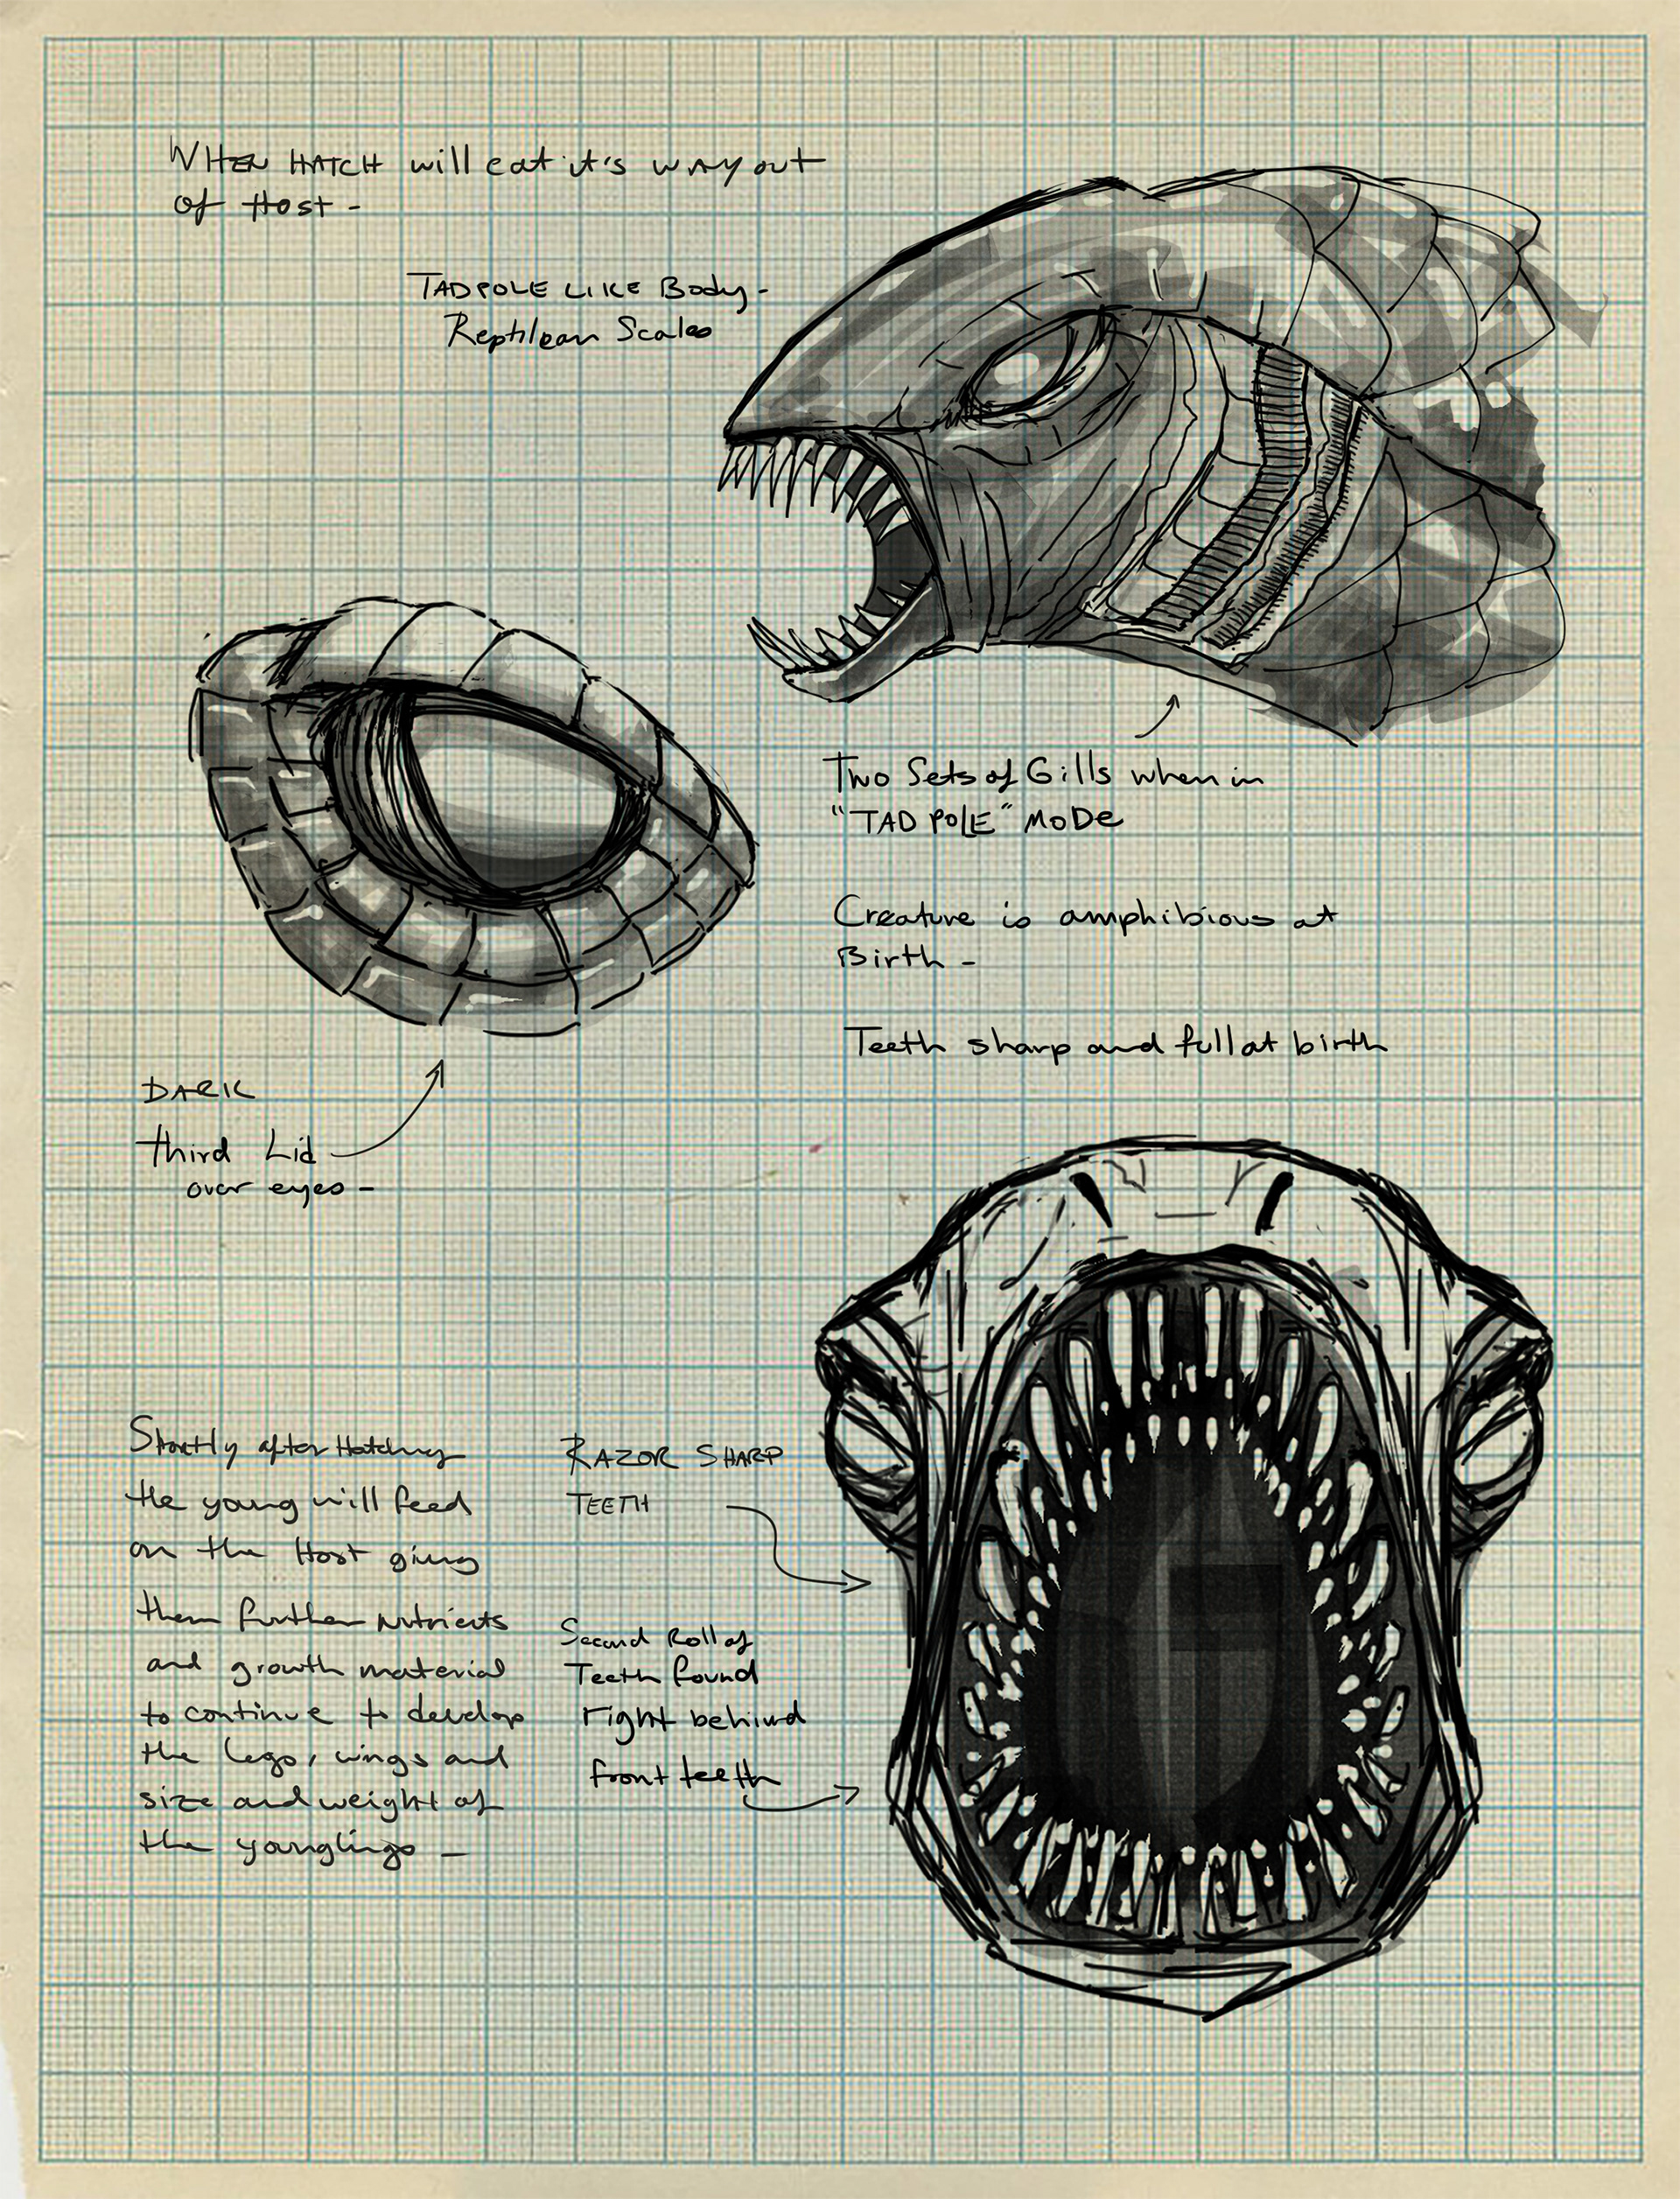 WHEN HATCH will eat it's way out
of Host -
TADPOLE LIKE Body -
Reptilean Scales
Two Sets of Gills when in
"TADPOLE" MODe
Creature is amphibious at
Birth -
Teeth sharp and full at birth
DARK
third Lid
over eyes -
Shortly after Hatching
the young will feed
on the Host giving
them further nutrients
and growth material
to continue to develop
the legs, wings and
size and weight of
the younglings -
RAZOR SHARP
TEETH
Second Roll of
Teeth found
right behind
front teeth